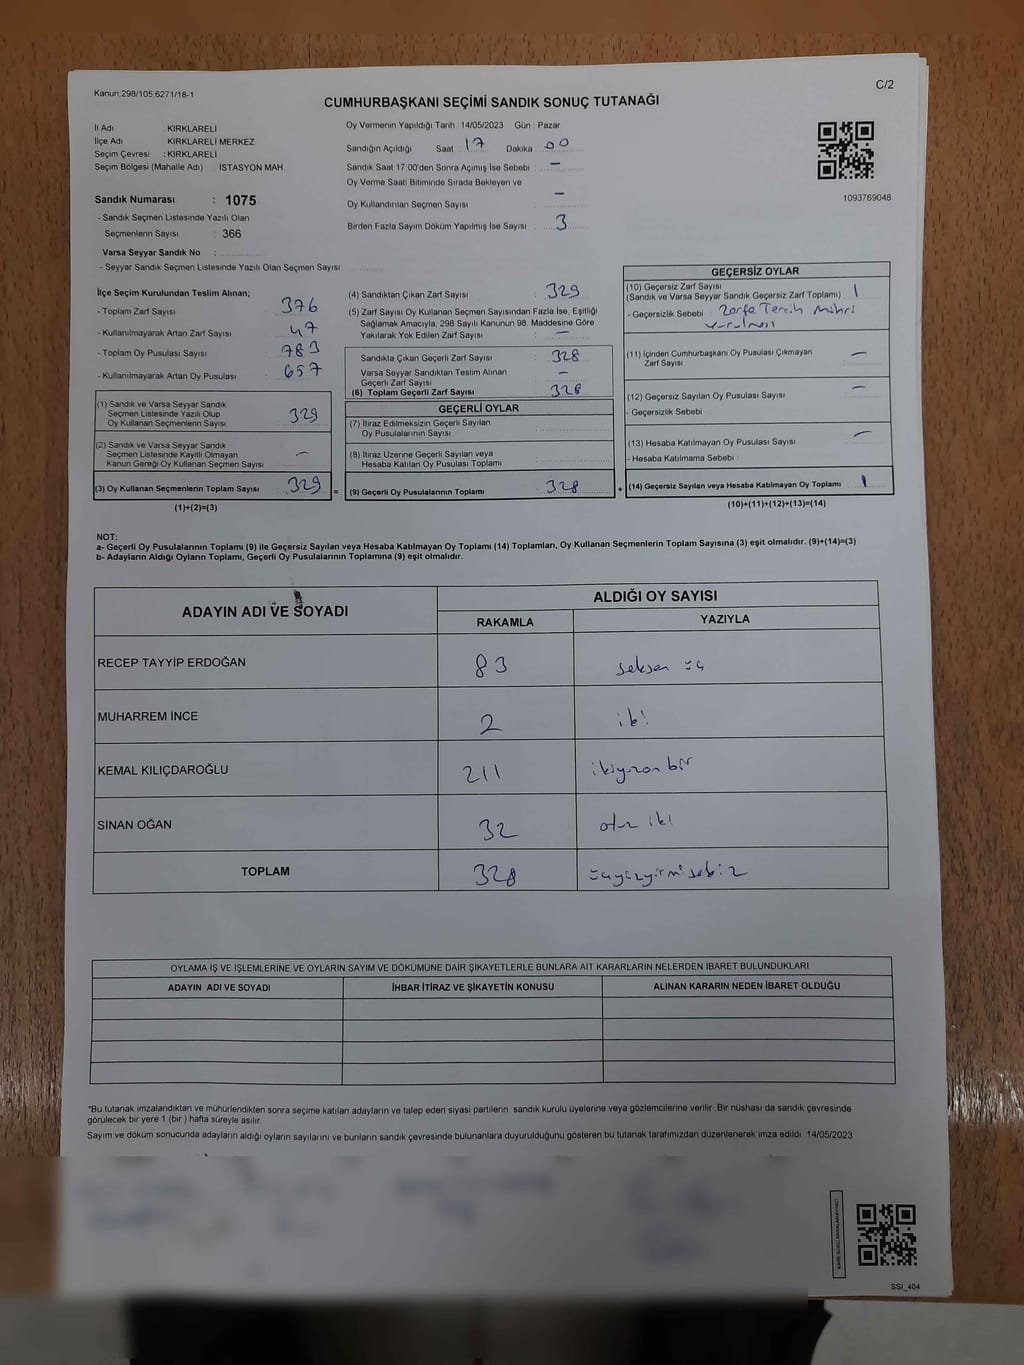 Kanun,298/105,6271/18-1
C/2
CUMHURBAŞKANI SEÇİMİ SANDIK SONUÇ TUTANAĞI
İl Adı : KIRKLARELİ
İlçe Adı : KIRKLARELİ MERKEZ
Seçim Çevresi : KIRKLARELİ
Seçim Bölgesi (Mahalle Adı) : İSTASYON MAH.
Oy Vermenin Yapıldığı Tarih : 14/05/2023 Gün : Pazar
Sandığın Açıldığı Saat : 17 Dakika : 00
Sandık Saat 17:00'den Sonra Açımış İse Sebebi : –
Oy Verme Saati Bitiminde Sırada Bekleyen ve
Oy Kullandırılan Seçmen Sayısı : –
Birden Fazla Sayım Döküm Yapılmış İse Sayısı : 3
1093769048
Sandık Numarası : 1075
- Sandık Seçmen Listesinde Yazılı Olan
Seçmenlerin Sayısı : 366
Varsa Seyyar Sandık No :
- Seyyar Sandık Seçmen Listesinde Yazılı Olan Seçmen Sayısı:
İlçe Seçim Kurulundan Teslim Alınan;
- Toplam Zarf Sayısı : 376
- Kullanılmayarak Artan Zarf Sayısı : 47
- Toplam Oy Pusulası Sayısı : 783
- Kullanılmayarak Artan Oy Pusulası : 657
(1) Sandık ve Varsa Seyyar Sandık
Seçmen Listesinde Yazılı Olup
Oy Kullanan Seçmenlerin Sayısı : 329
(2) Sandık ve Varsa Seyyar Sandık
Seçmen Listesinde Kayıtlı Olmayan
Kanun Gereği Oy Kullanan Seçmen Sayısı : –
(3) Oy Kullanan Seçmenlerin Toplam Sayısı : 329 =
(1)+(2)=(3)
(4) Sandıktan Çıkan Zarf Sayısı : 329
(5) Zarf Sayısı Oy Kullanan Seçmen Sayısından Fazla İse, Eşitliği
Sağlamak Amacıyla, 298 Sayılı Kanunun 98. Maddesine Göre
Yakılarak Yok Edilen Zarf Sayısı : –
Sandıkta Çıkan Geçerli Zarf Sayısı : 328
Varsa Seyyar Sandıktan Teslim Alınan
Geçerli Zarf Sayısı : –
(6) Toplam Geçerli Zarf Sayısı : 328
GEÇERLİ OYLAR
(7) İtiraz Edilmeksizin Geçerli Sayılan
Oy Pusulalarının Sayısı :
(8) İtiraz Üzerine Geçerli Sayılan veya
Hesaba Katılan Oy Pusulası Toplamı :
(9) Geçerli Oy Pusulalarının Toplamı : 328 +
GEÇERSİZ OYLAR
(10) Geçersiz Zarf Sayısı
(Sandık ve Varsa Seyyar Sandık Geçersiz Zarf Toplamı) : 1
- Geçersizlik Sebebi : Zarfa Tercih Mührü
vurulması
(11) İçinden Cumhurbaşkanı Oy Pusulası Çıkmayan
Zarf Sayısı : –
(12) Geçersiz Sayılan Oy Pusulası Sayısı : –
- Geçersizlik Sebebi :
(13) Hesaba Katılmayan Oy Pusulası Sayısı : –
- Hesaba Katılmama Sebebi :
(14) Geçersiz Sayılan veya Hesaba Katılmayan Oy Toplamı : 1
(10)+(11)+(12)+(13)=(14)
NOT:
a- Geçerli Oy Pusulalarının Toplamı (9) ile Geçersiz Sayılan veya Hesaba Katılmayan Oy Toplamı (14) Toplamları, Oy Kullanan Seçmenlerin Toplam Sayısına (3) eşit olmalıdır. (9)+(14)=(3)
b- Adayların Aldığı Oyların Toplamı, Geçerli Oy Pusulalarının Toplamına (9) eşit olmalıdır.
ADAYIN ADI VE SOYADI
ALDIĞI OY SAYISI
RAKAMLA YAZIYLA
RECEP TAYYİP ERDOĞAN 83 seksen üç
MUHARREM İNCE 2 iki
KEMAL KILIÇDAROĞLU 211 ikiyüzon bir
SİNAN OĞAN 32 otuz iki
TOPLAM 328 üçyüzyirmisekiz
OYLAMA İŞ VE İŞLEMLERİNE VE OYLARIN SAYIM VE DÖKÜMÜNE DAİR ŞİKAYETLERLE BUNLARA AİT KARARLARIN NELERDEN İBARET BULUNDUKLARI
ADAYIN ADI VE SOYADI İHBAR İTİRAZ VE ŞİKAYETİN KONUSU ALINAN KARARIN NEDEN İBARET OLDUĞU
*Bu tutanak imzalandıktan ve mühürlendikten sonra seçime katılan adayların ve talep eden siyasi partilerin sandık kurulu üyelerine veya gözlemcilerine verilir. Bir nüshası da sandık çevresinde
görülecek bir yere 1 (bir) hafta süreyle asılır.
Sayım ve döküm sonucunda adayların aldığı oyların sayılarını ve bunların sandık çevresinde bulunanlara duyurulduğunu gösteren bu tutanak tarafımızdan düzenlenerek imza edildi. 14/05/2023
SSI_404